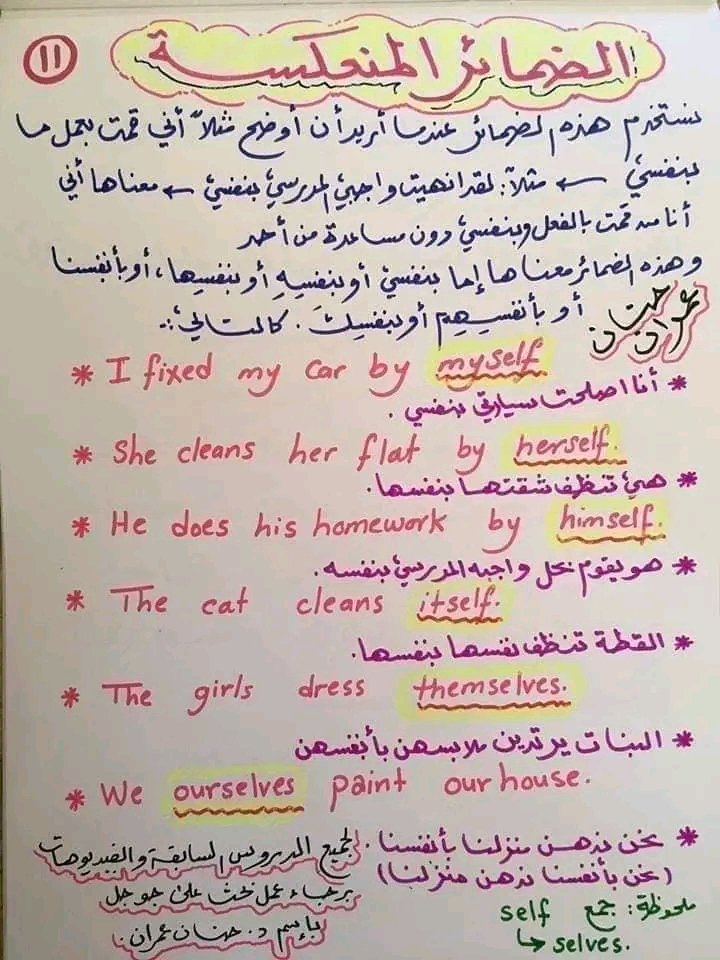 ١١
الضمائر المنعكسة
نستخدم هذه الضمائر عندما أريد أن أوضح مثلاً أني قمت بعمل ما
بنفسي ← مثلاً: لقد انهيت واجبي المدرسي بنفسي ← معناها أني
أنا من قمت بالفعل وبنفسي دون مساعدة من أحد
وهذه الضمائر معناها إما بنفسي أو بنفسهِ أو بنفسها، أو بأنفسنا
أو بأنفسهم أو بنفسك. كالتالي:
حنان
عمران
* I fixed my car by myself
* أنا اصلحت سيارتي بنفسي.
* She cleans her flat by herself.
* هي تنظف شقتها بنفسها.
* He does his homework by himself.
* هو يقوم بحل واجبه المدرسي بنفسه.
* The cat cleans itself.
* القطة تنظف نفسها بنفسها.
* The girls dress themselves.
* البنات يرتدين ملابسهن بأنفسهن
* We ourselves paint our house.
* نحن ندهن منزلنا بأنفسنا.
(نحن بأنفسنا ندهن منزلنا)
ملحوظة: جمع self
↳ selves.
لجميع الدروس السابقة والفيديوهات
برجاء عمل بحث على جوجل
بإسم د. حنان عمران.